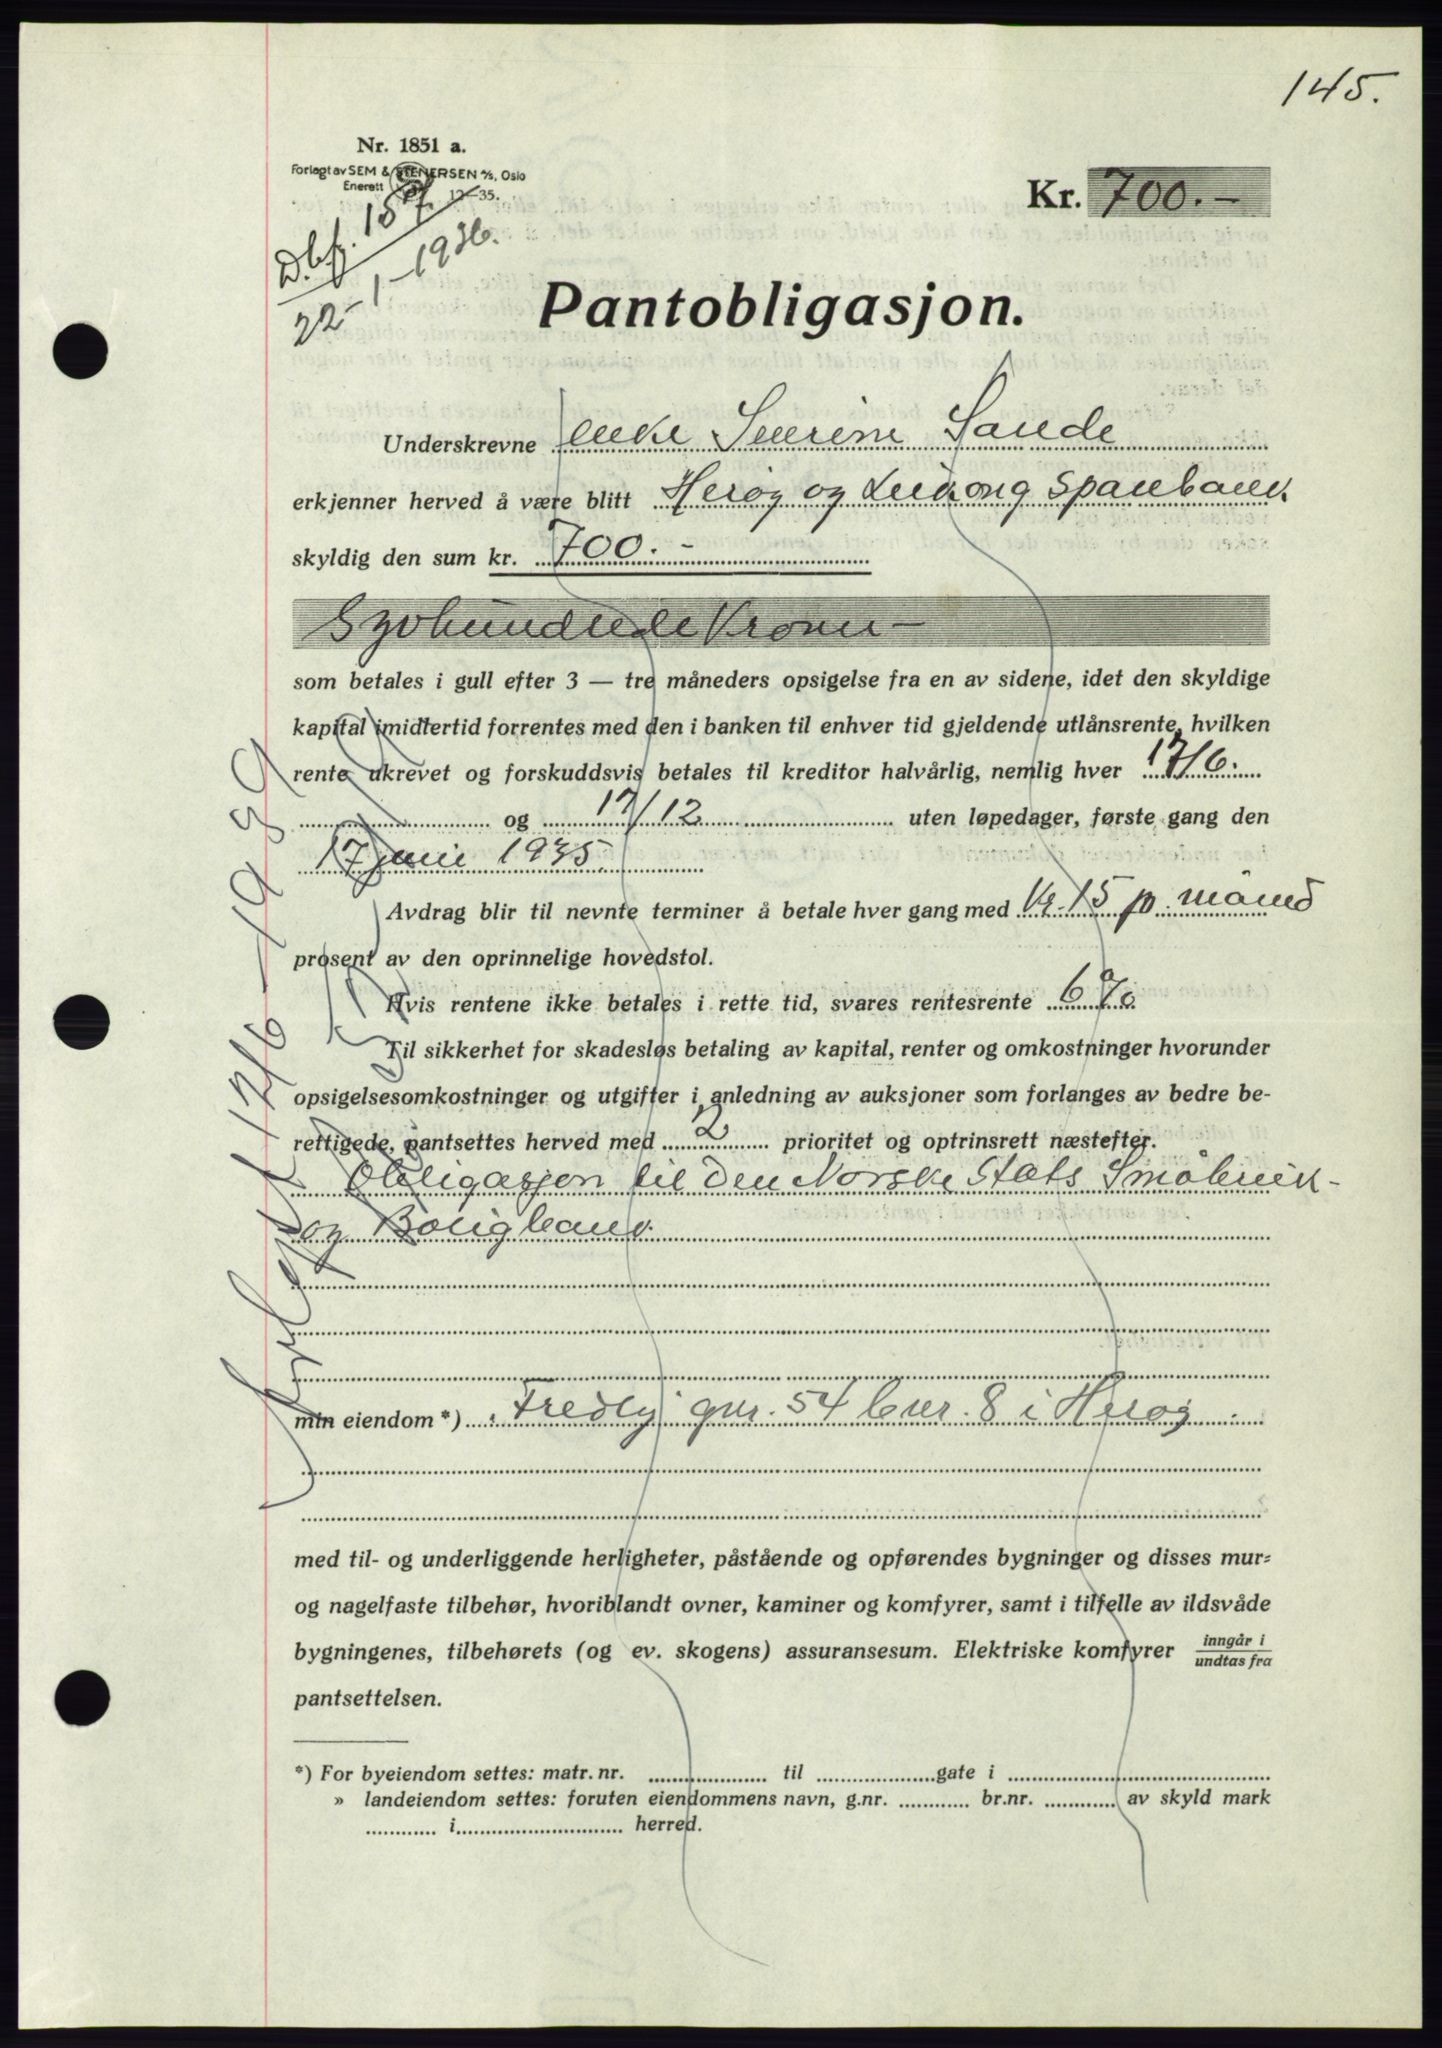 145.
Nr. 1851 a.
Forlagt av SEM & STENERSEN A/S, Oslo
Enerett 12-35.
Dbf. 157
22-1-1936.
Kr. 700.-
Pantobligasjon.
Underskrevne enke Severine Sande
erkjenner herved å være blitt Herøy og Leikong Sparebank
skyldig den sum kr. 700.-
Syvhundrede Kroner -
som betales i gull efter 3 — tre måneders opsigelse fra en av sidene, idet den skyldige
kapital imidlertid forrentes med den i banken til enhver tid gjeldende utlånsrente, hvilken
rente ukrevet og forskuddsvis betales til kreditor halvårlig, nemlig hver 17/6.
og 17/12 uten løpedager, første gang den
17 juni 1935.
Avdrag blir til nevnte terminer å betale hver gang med kr. 15 p. måned
prosent av den oprinnelige hovedstol.
Hvis rentene ikke betales i rette tid, svares rentesrente 6 %
Til sikkerhet for skadesløs betaling av kapital, renter og omkostninger hvorunder
opsigelsesomkostninger og utgifter i anledning av auksjoner som forlanges av bedre be-
rettigede, pantsettes herved med 2 prioritet og optrinsrett næstefter.
Obligasjon til Den Norske Stats Småbruk-
og Boligbank.
min eiendom *) "Fredly" gnr. 54 bnr. 8 i Herøy.
med til- og underliggende herligheter, påstående og opførendes bygninger og disses mur-
og nagelfaste tilbehør, hvoriblandt ovner, kaminer og komfyrer, samt i tilfelle av ildsvåde
bygningenes, tilbehørets (og ev. skogens) assuransesum. Elektriske komfyrer inngår i / undtas fra
pantsettelsen.
*) For byeiendom settes: matr. nr. til gate i
» landeiendom settes: foruten eiendommens navn, g.nr. br.nr. av skyld mark
i herred.
17/6 - 1939